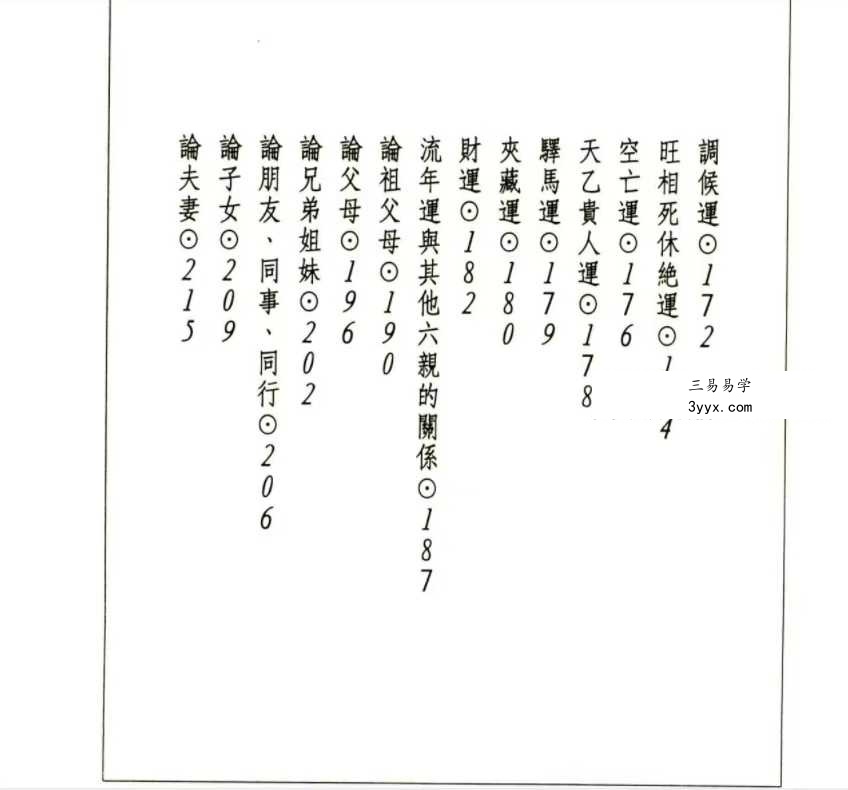 調候運⊙172
旺相死休絶運⊙1 4
空亡運⊙176
天乙貴人運⊙178
驛馬運⊙179
夾藏運⊙180
財運⊙182
流年運與其他六親的關係⊙187
論祖父母⊙190
論父母⊙196
論兄弟姐妹⊙202
論朋友、同事、同行⊙206
論子女⊙209
論夫妻⊙215
三易易学
3yyx.com